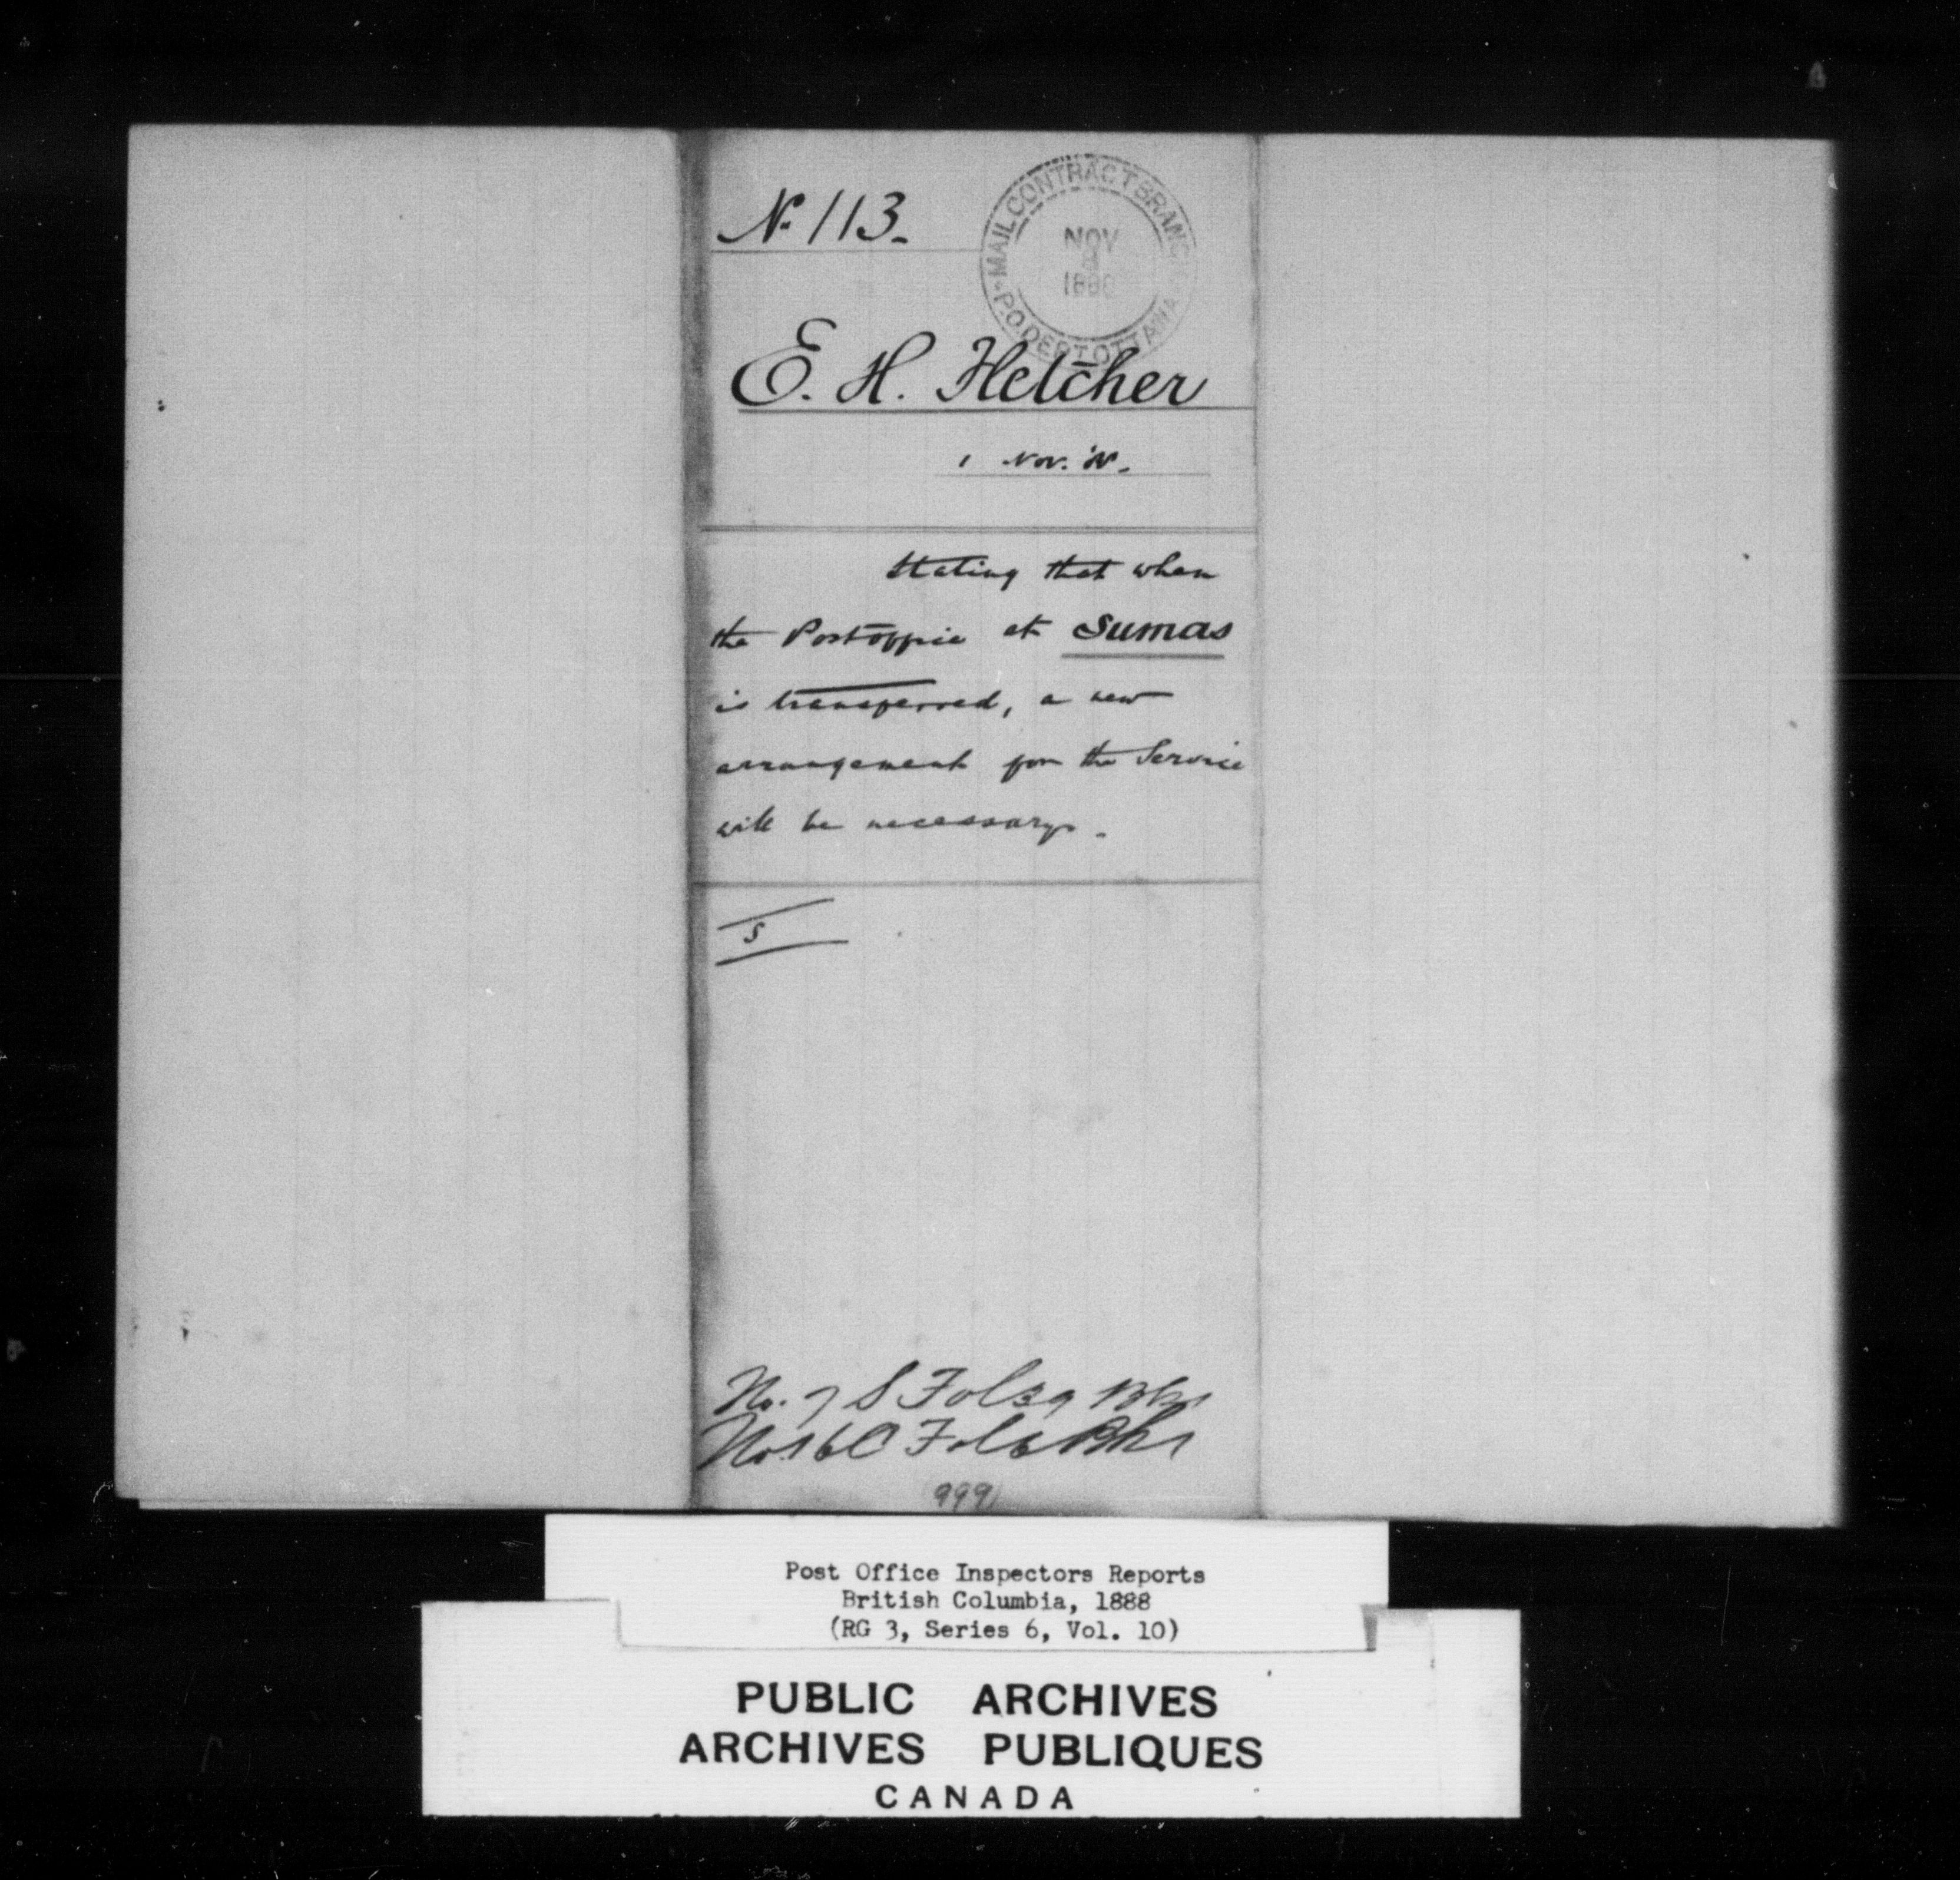 No. 113.
MAIL CONTRACT BRANCH
P.O. DEPT OTTAWA
NOV
1888
E. H. Fletcher
1 Nov. '88.
Stating that when
the Postoffice at Sumas
is transferred, a new
arrangement for the Service
will be necessary.
5
No. 7 S Fol
No. 16 C Fol
999
Post Office Inspectors Reports
British Columbia, 1888
(RG 3, Series 6, Vol. 10)
PUBLIC ARCHIVES
ARCHIVES PUBLIQUES
CANADA